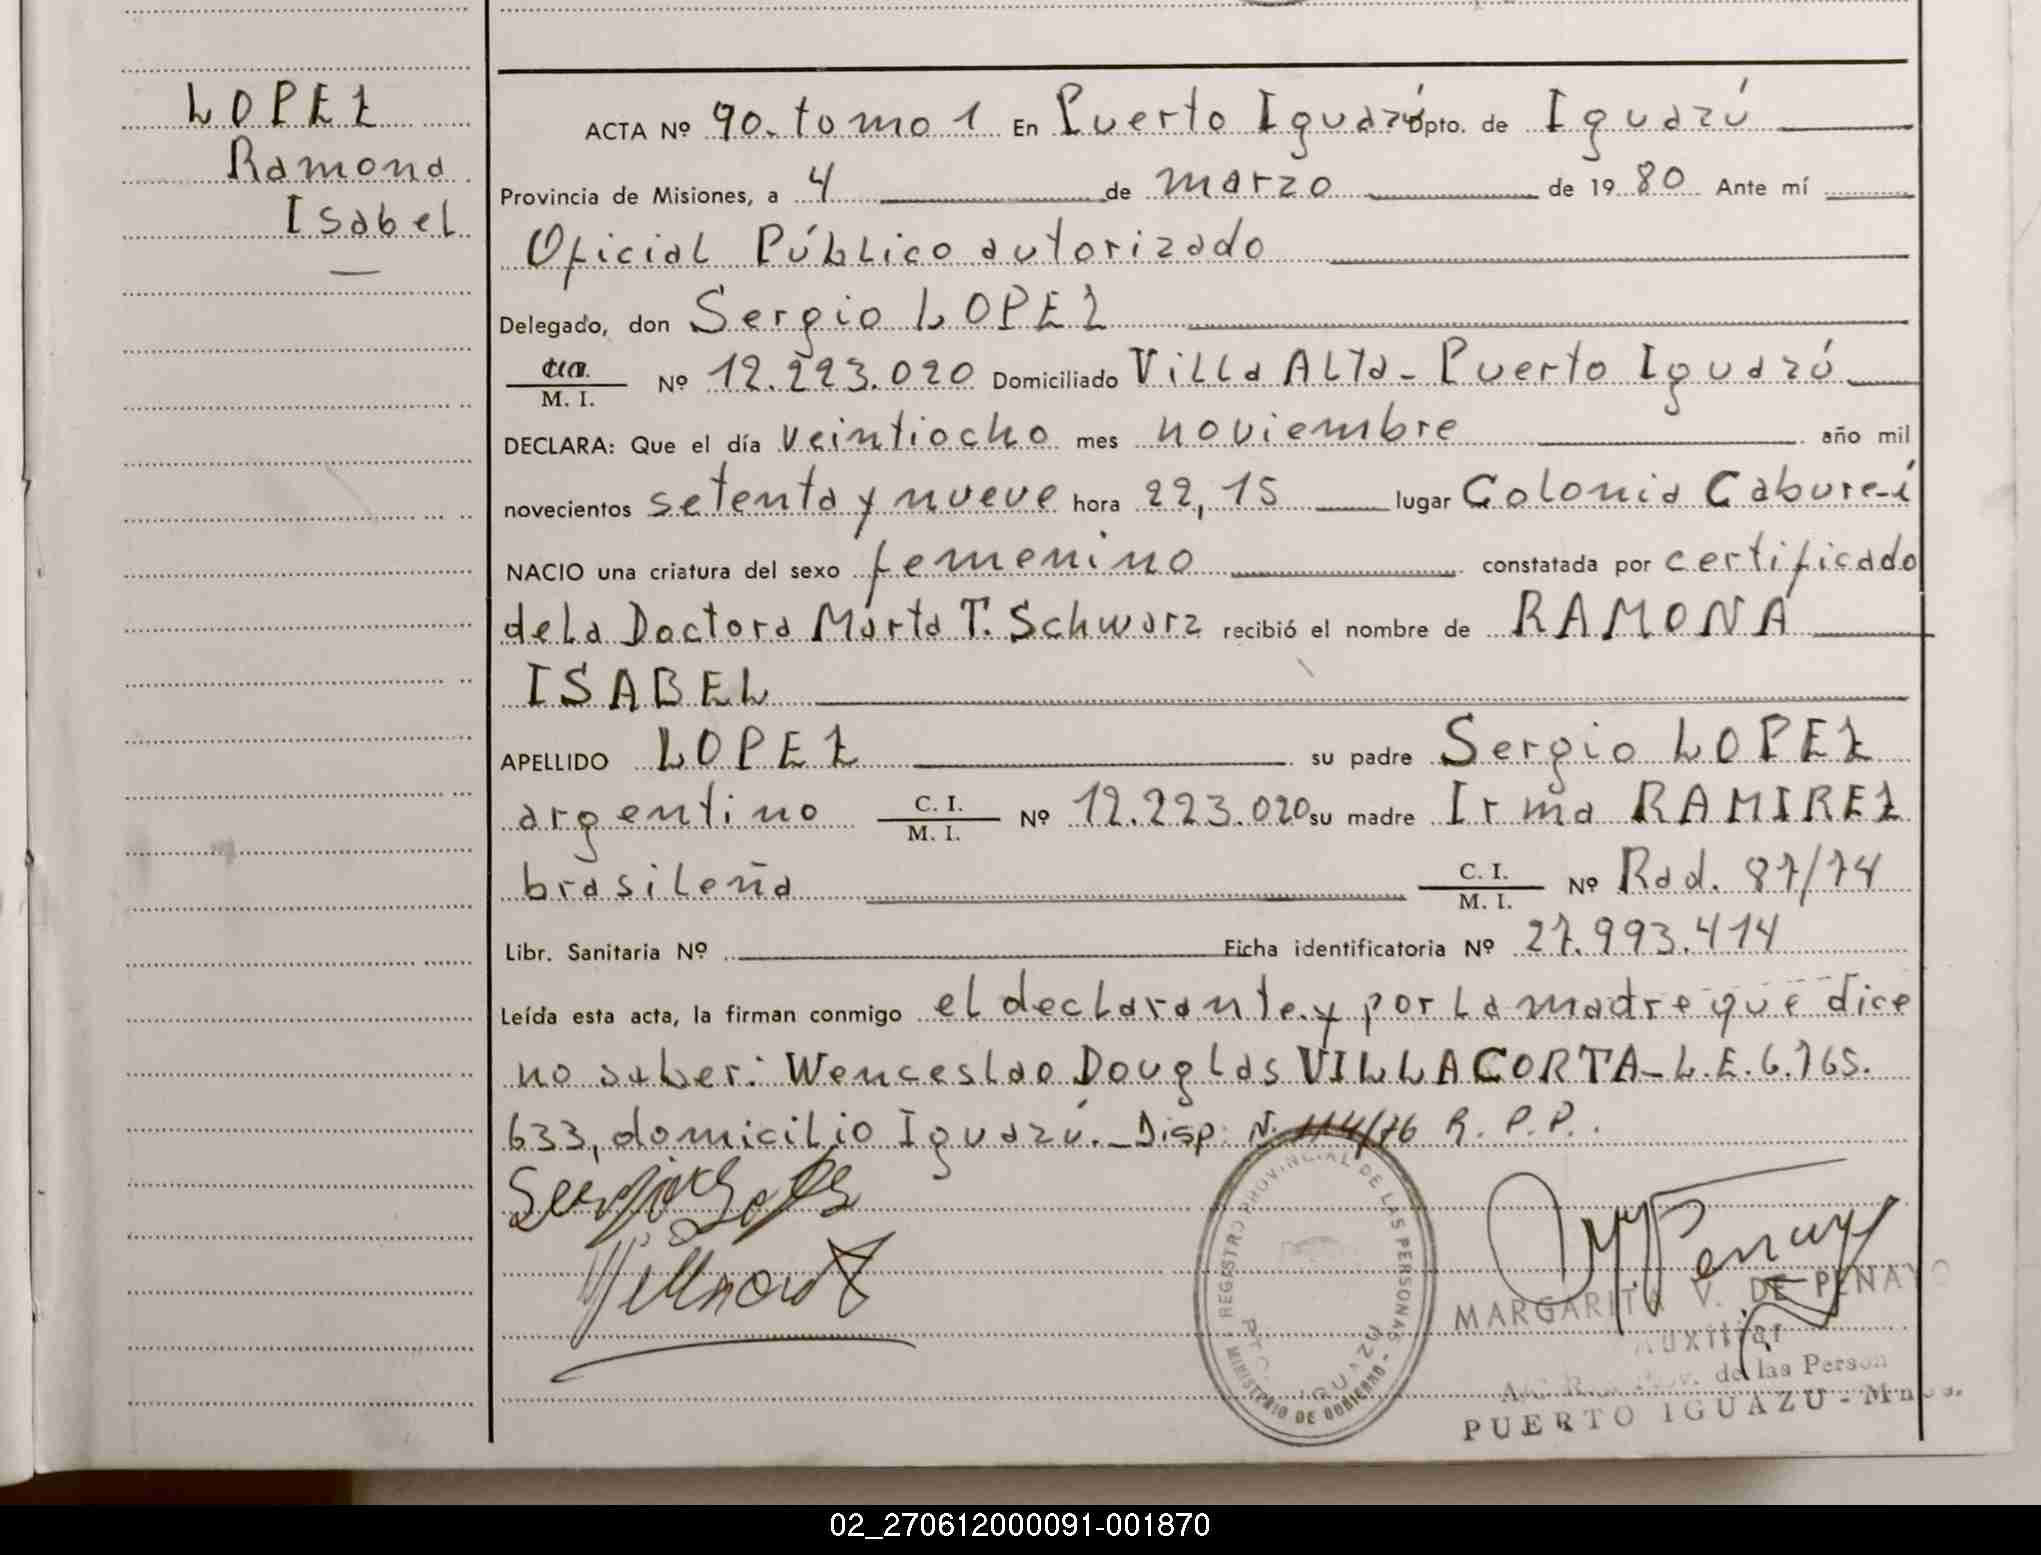 LOPEZ
Ramona
Isabel
ACTA Nº 90. tomo 1 En Puerto Iguazú Dpto. de Iguazú
Provincia de Misiones, a 4 de marzo de 1980 Ante mí
Oficial Público autorizado
Delegado, don Sergio LOPEZ
M. I. Nº 12.223.020 Domiciliado Villa Alta - Puerto Iguazú
DECLARA: Que el día veintiocho mes noviembre año mil
novecientos setenta y nueve hora 22,15 lugar Colonia Cabure-í
NACIO una criatura del sexo femenino constatada por certificado
de la Doctora Marta T. Schwarz recibió el nombre de RAMONA
ISABEL
APELLIDO LOPEZ su padre Sergio LOPEZ
argentino C. I. / M. I. Nº 12.223.020 su madre Irma RAMIREZ
brasileña C. I. / M. I. Nº Rad. 87/74
Libr. Sanitaria Nº Ficha identificatoria Nº 27.993.414
Leída esta acta, la firman conmigo el declarante y por la madre que dice
no saber: Wenceslao Douglas VILLACORTA - L.E. 6.765.
633, domicilio Iguazú. - Disp. N. 114/76 R. P. P.
REGISTRO PROVINCIAL DE LAS PERSONAS
MINISTERIO DE GOBIERNO
PTO. IGUAZU
MARGARITA V. DE PENAYO
Auxiliar
de las Person
PUERTO IGUAZU - Mnes.
02_270612000091-001870